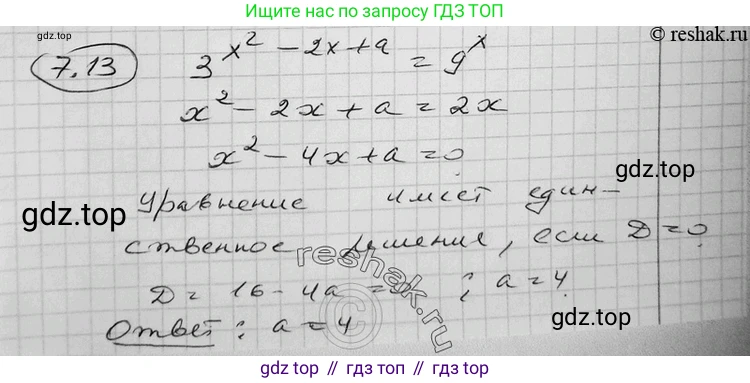 Ищите нас по запросу ГДЗ ТОП
© reshak.ru
7.13 3^{x^2 - 2x + a} = 9^x
x^2 - 2x + a = 2x
x^2 - 4x + a = 0
gdz.top
Уравнение имеет един-
gdz.top
ственное решение, если D = 0
reshak.ru
D = 16 - 4a = 0; a = 4.
gdz.top
Ответ: a = 4
gdz.top // гдз.топ // gdz.top